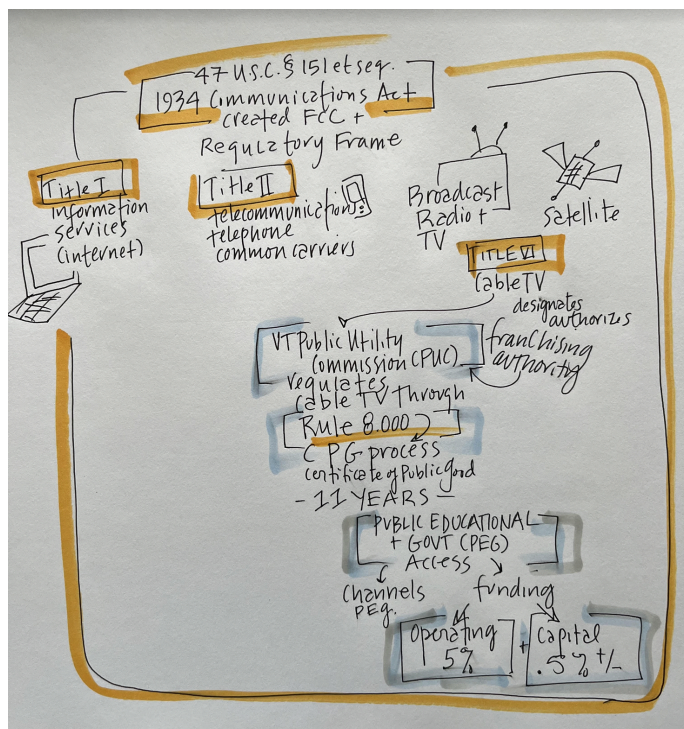 47 U.S.C. § 151 et seq.
1934 Communications Act
created FCC +
Regulatory Frame
Title I
information
services
(internet)
Title II
telecommunications
telephone
common carriers
Broadcast
Radio +
TV
Satellite
TITLE VI
Cable TV
designates
authorizes
franchising
authority
VT Public Utility
Commission (PUC)
regulates
Cable TV Through
Rule 8.000
CPG process
certificate of Public good
- 11 YEARS -
PUBLIC EDUCATIONAL
+ GOVT (PEG)
Access
channels
PEG.
funding
Operating
5%
+
Capital
.5% +/-